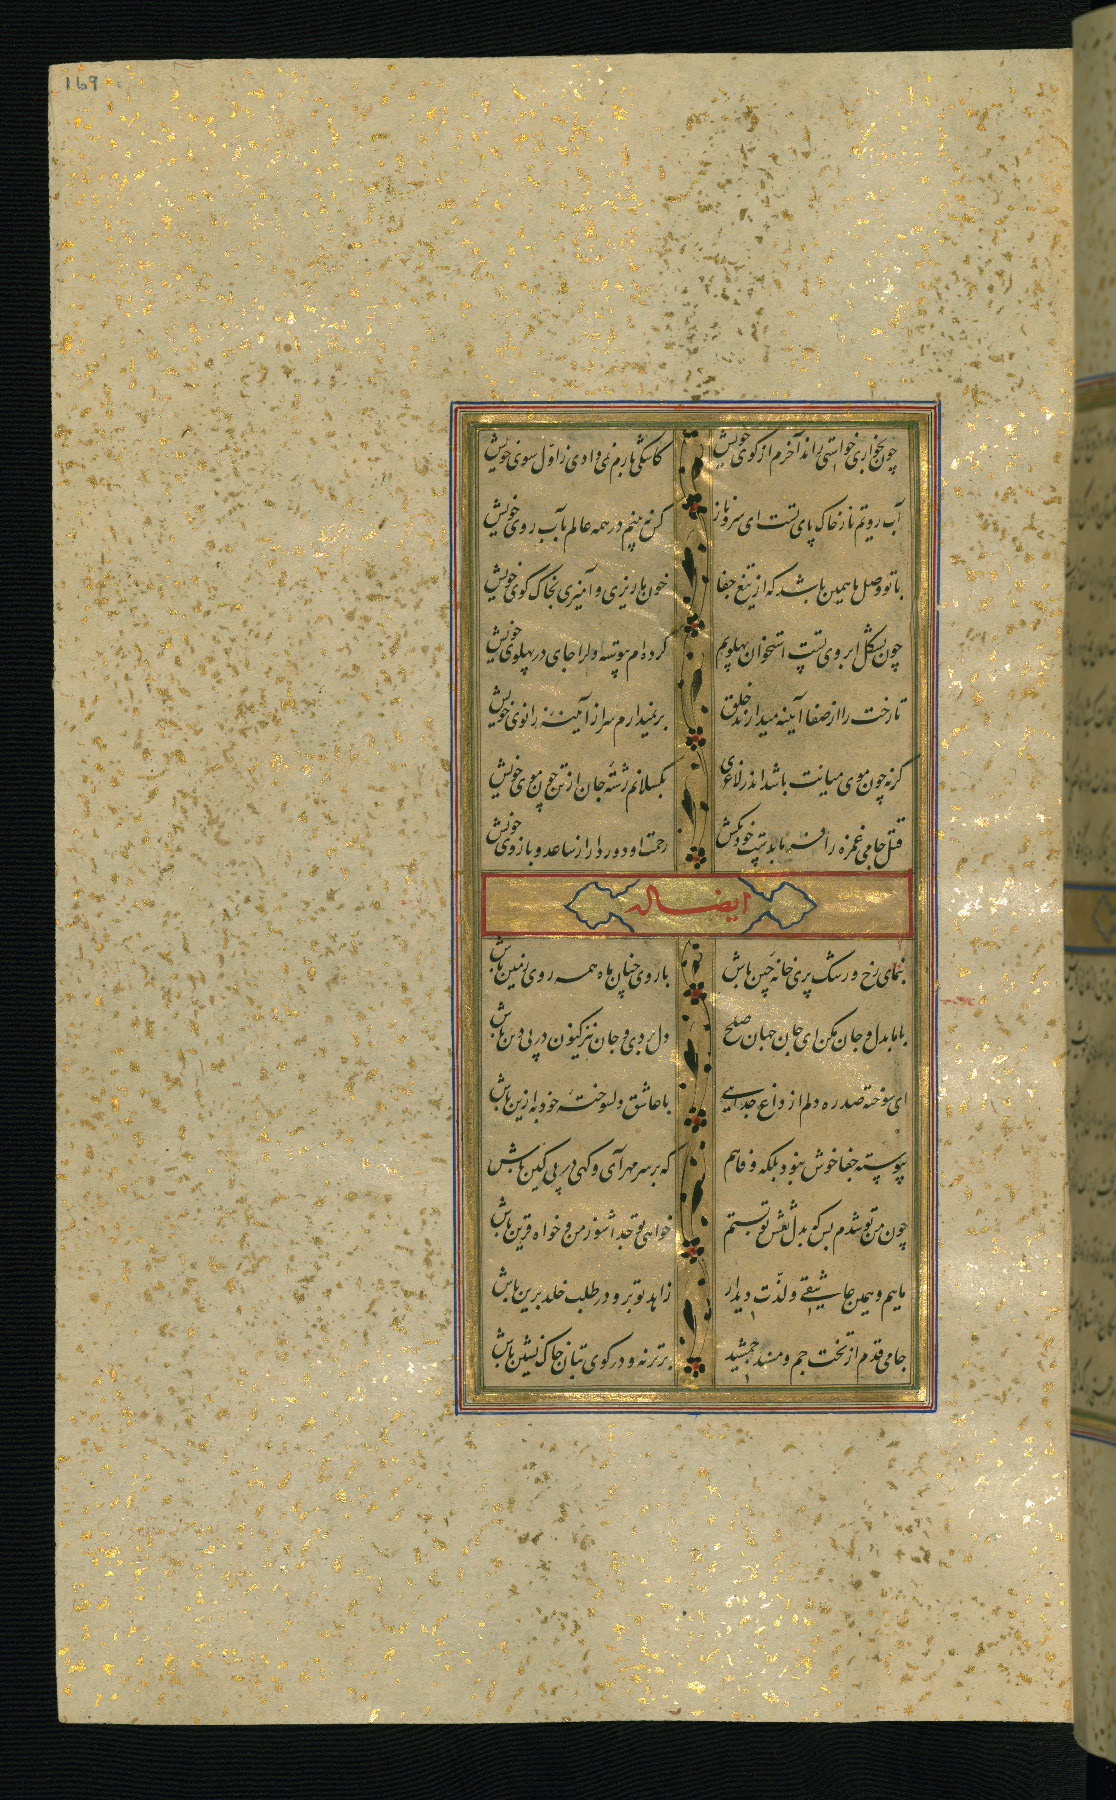 169
چون بخواری خواستی راند آخرم از کوی خویش
کاشکی بارم نمی دادی ز اول سوی خویش
آب رویم ناز خاک پای تست ای سرو ناز
کر نه بینم در همه عالم بآب روی خویش
با تو وصل ما همین باشد که از تیغ جفا
خون ما ریزی و آمیزی بخاک کوی خویش
چون بشکل ابروی تست استخوان پهلویم
کرده ام پیوسته او را جای در پهلوی خویش
تا رخت را از صفا آیینه میدارند خلق
بر نمیدارم سر از آیینه زانوی خویش
کر نه چون موی میانت باشد اندر لاغری
بکسلانم رشته جان از تن چون موی خویش
قتل جامی غمزه را فرما بدست خود مکش
زحمت او دور دار از ساعد و بازوی خویش
ایضاله
بنمای رخ و رشک پری خانه چین باش
با روی چنان ماه همه روی زمین باش
با ما بدل و جان مکن ای جان جهان صلح
دل بردی و جان نیز کنون در پی دین باش
ای سوخته صد ره دلم از داغ جدایی
با عاشق دلسوخته خود به ازین باش
پیوسته جفا خوش نبود بلکه وفا هم
که بر سر مهر آی و کهی در پی کین باش
چون من تو شدم بس که بدل نقش تو بستم
خواهی تو جدا شو ز من و خواه قرین باش
ماییم و همین عاشقی و لذت دیدار
زاهد تو برو در طلب خلد برین باش
جامی قدم از تخت جم و مسند جمشید
برتر نه و در کوی بتان خاک نشین باش